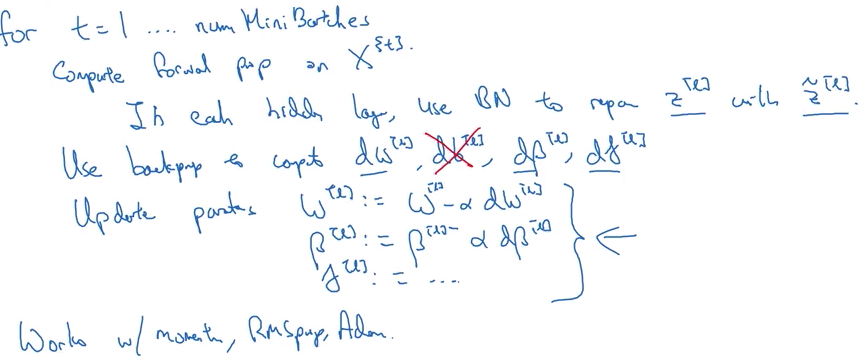 for t = 1 .... num Mini Batches
Compute forwal pop on X^{t}.
In eah hidden laye, use BN to repare z^[l] with z̃^[l].
Use backprop to compt dw^[l], db^[l], dβ^[l], dγ^[l]
Update parates w^[l] := w^[l] - α dw^[l]
β^[l] := β^[l] - α dβ^[l]
γ^[l] := ....
Works w/ momentn, RMSprop, Adam.